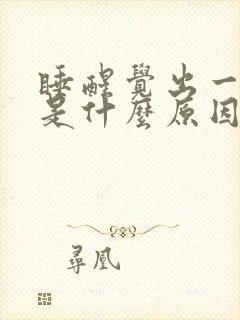 睡醒覺出一
是什麼原因
尋凰